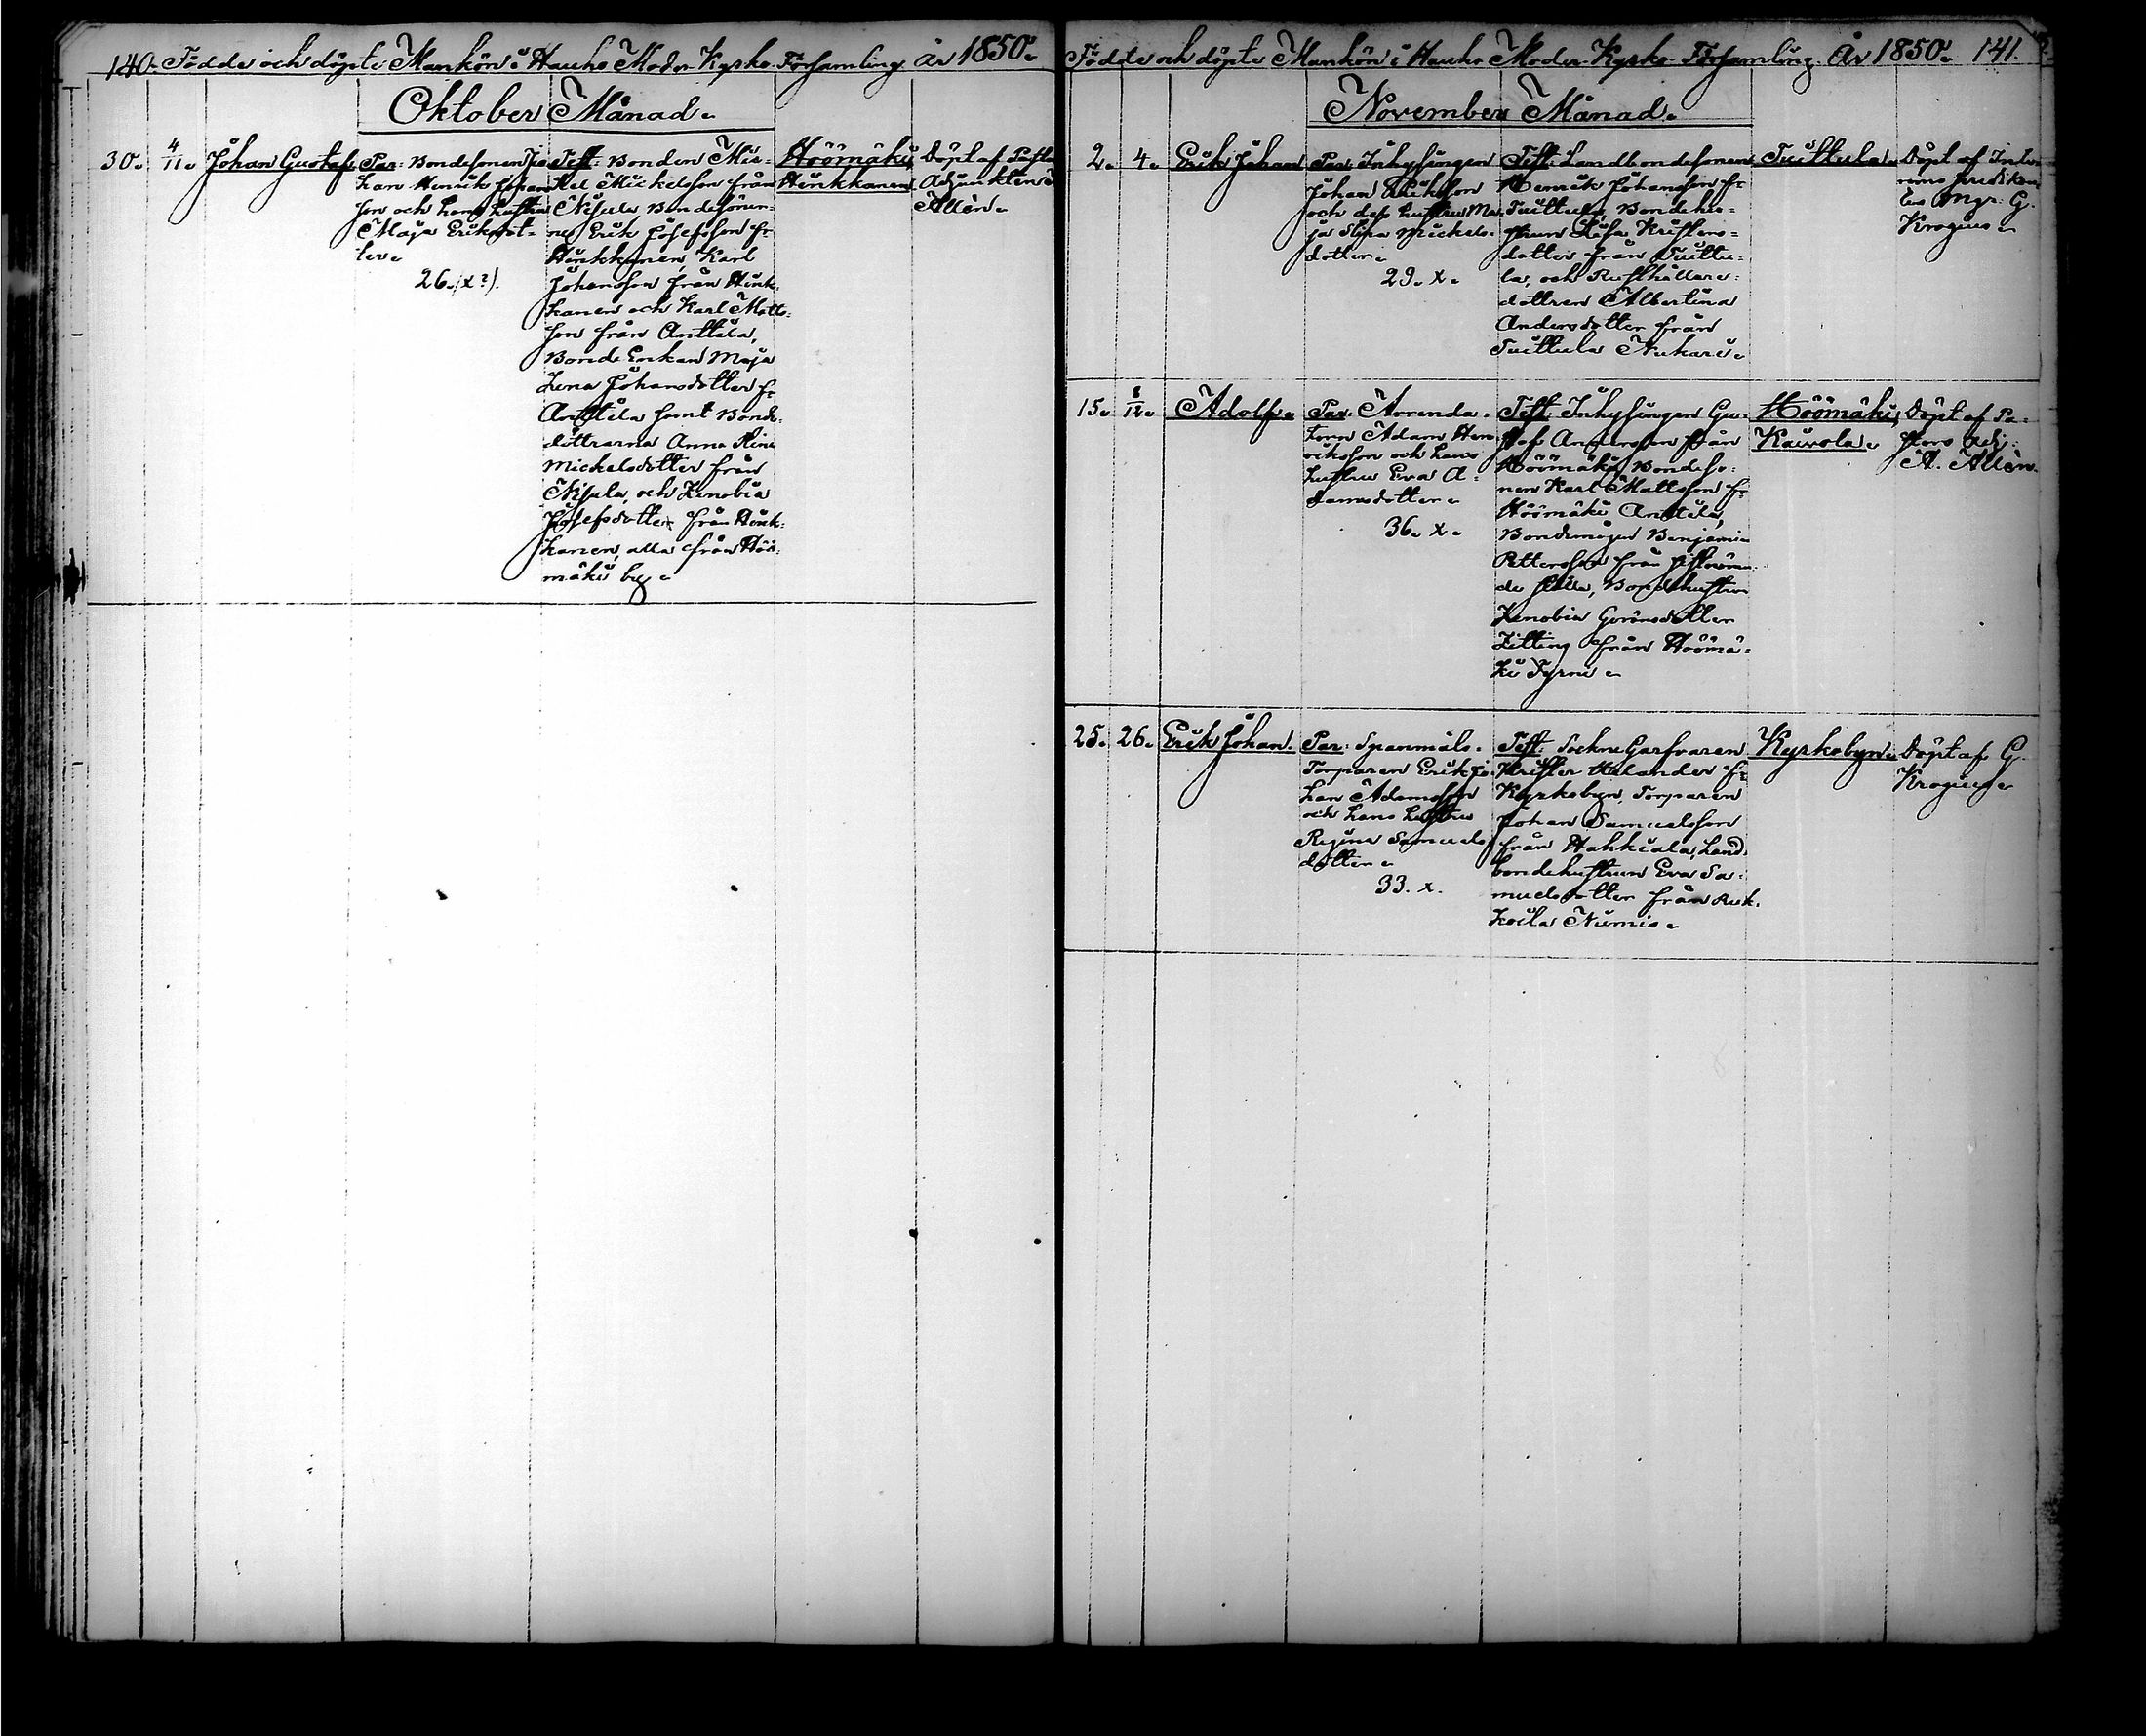 140. Födde och döpte Mankön i Hauho Moder Kyrko Församling År 1850.
Oktober Månad.
30. 4/11. Johan Gustaf.
Par: Bondesonen Jo-
han Henrik Johans
son och hans hustru
Maja Eriksdot-
ter.
26. (x?).
Test: Bonden Mic-
kel Mickelsson från
Nisula Bondesöner-
ne Erik Josefsson fr.
Hinkkanen, Karl
Johansson från Hink-
kanen och Karl Matts-
son från Anttila,
Bonde Enkan Maja
Lena Johansdotter fr.
Anttila samt Bonde-
döttrarna Anna Stina
Mickelsdotter från
Nisula, och Zenobia
Josefsdotter från Hink-
kanen, alla från Höö-
mäki by.
Höömäki,
Hinkkanen.
Döpt af Pasto
Adjunkten A
Allén.
Födde och döpte Mankön i Hauho Moder Kyrko Församling År 1850. 141.
November Månad.
2. 4. Erik Johan
Par: Inhysingen
Johan Eriksson
och dess hustru Ma-
ja Stina Mickels-
dotter.
29. x.
Test: Landbondesonen
Henrik Johansson fr.
Tuittula, Bondehu-
strun Lisa Kristers-
dotter från Tuittu-
la, och Rusthållare-
dottren Albertina
Andersdotter från
Tuittula Nuhari.
Tuittula.
Döpt af Inte-
rims predikan
ten Mgr. G.
Krogius.
15. 8/12. Adolf.
Par: Arrenda-
torn Adam Hen-
ricksson och hans
hustru Eva A-
damsdotter.
36. x.
Test: Inhysingen Gu-
staf Andersson från
Höömäki, Bondeso-
nen Karl Mattsson fr.
Höömäki Anttila,
Bondemågen Benjamin
Pettersson från
Bondehustrun
Zenobia Göransdotter
Zitting från Höömä-
ki Tyrni.
Höömäki,
Kaivola.
Döpt af Pa-
stors Adj:
A. Allén.
25. 26. Erik Johan.
Par: Spanmåls-
Torparen Erik Jo-
han Adamsson
och hans hustru
Regina Samuels
dotter.
33. x.
Test: Sockne Garfvaren
Krister Helander fr.
Kyrkobyn, Torparen
Johan Samuelsson
från Hahkiala, Land-
bondehustrun Eva Sa-
muelsdotter från Ruk-
koila Numis.
Kyrkobyn.
Döpt af G.
Krogius.